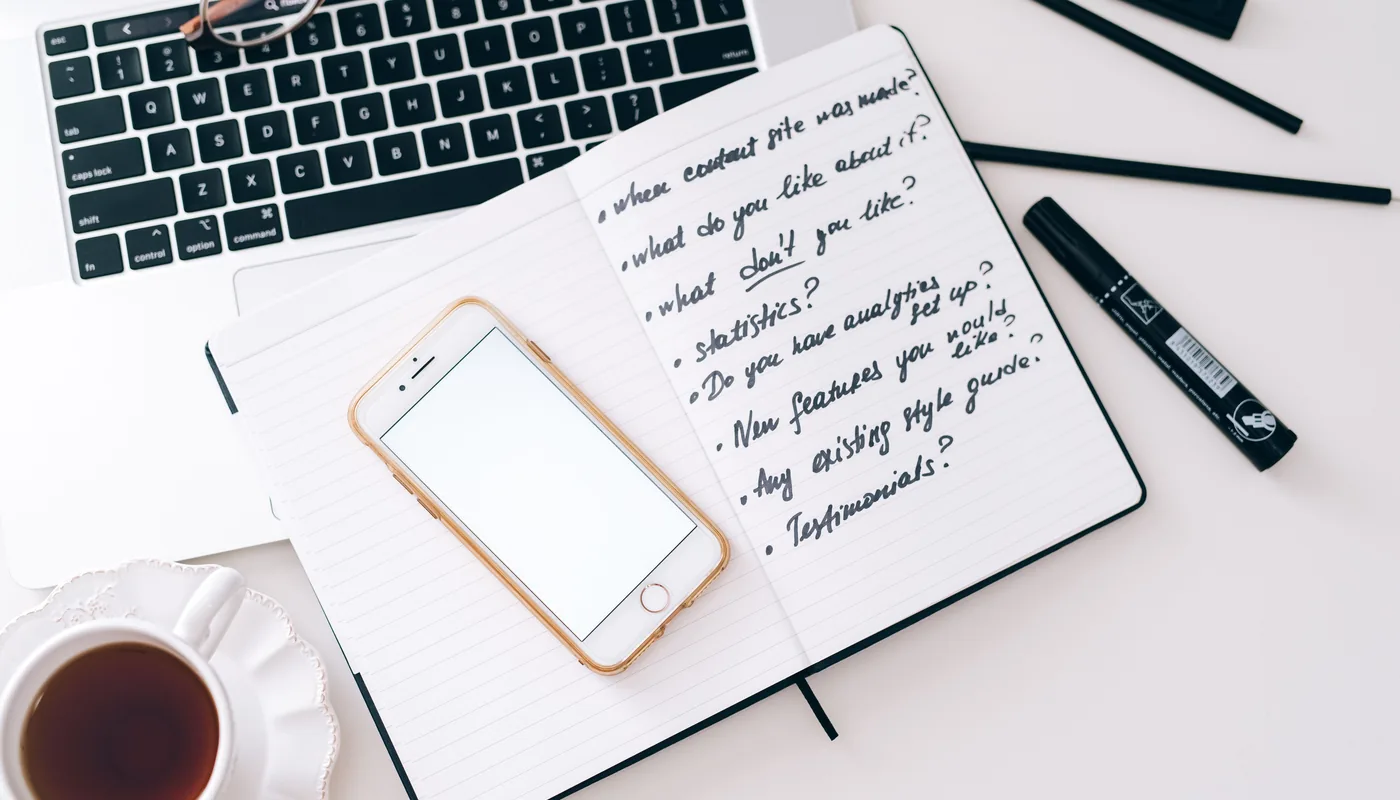 esc
~ `
! 1
@ 2
# 3
$ 4
% 5
^ 6
& 7
* 8
tab Q W E R T Y U I O P return
caps lock A S D F G H J K L
shift Z X C V B N M < , > . ? /
fn control option command ⌘
• when content site was made?
• what do you like about it?
• what don't you like?
• statistics?
• Do you have analyties
set up?
• New features you would
like?
• Any existing style guide?
• Testimonials?